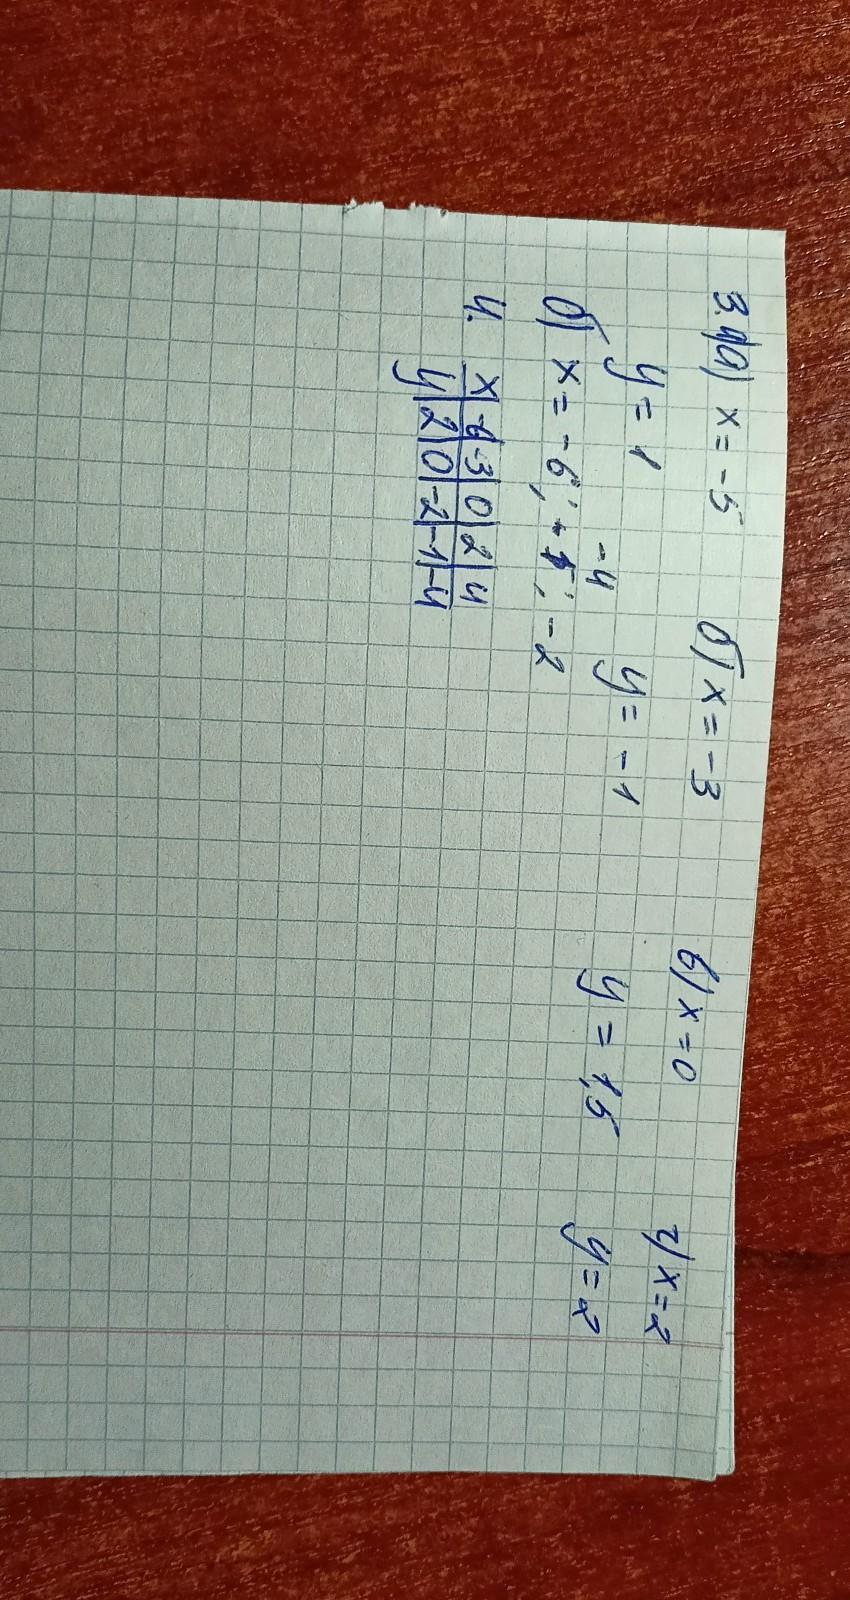 3. а) x = -5 б) x = -3 в) x = 0 г) x = 2
y = 1 y = -1 y = 1,5 y = 2
-4
б) x = -6; ; -2
4. x -6 -3 0 2 4
y 2 0 -2 -1 -4